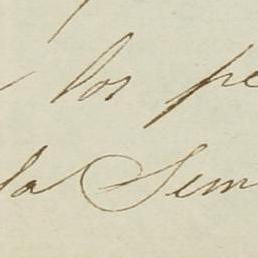 los pe
la Sem